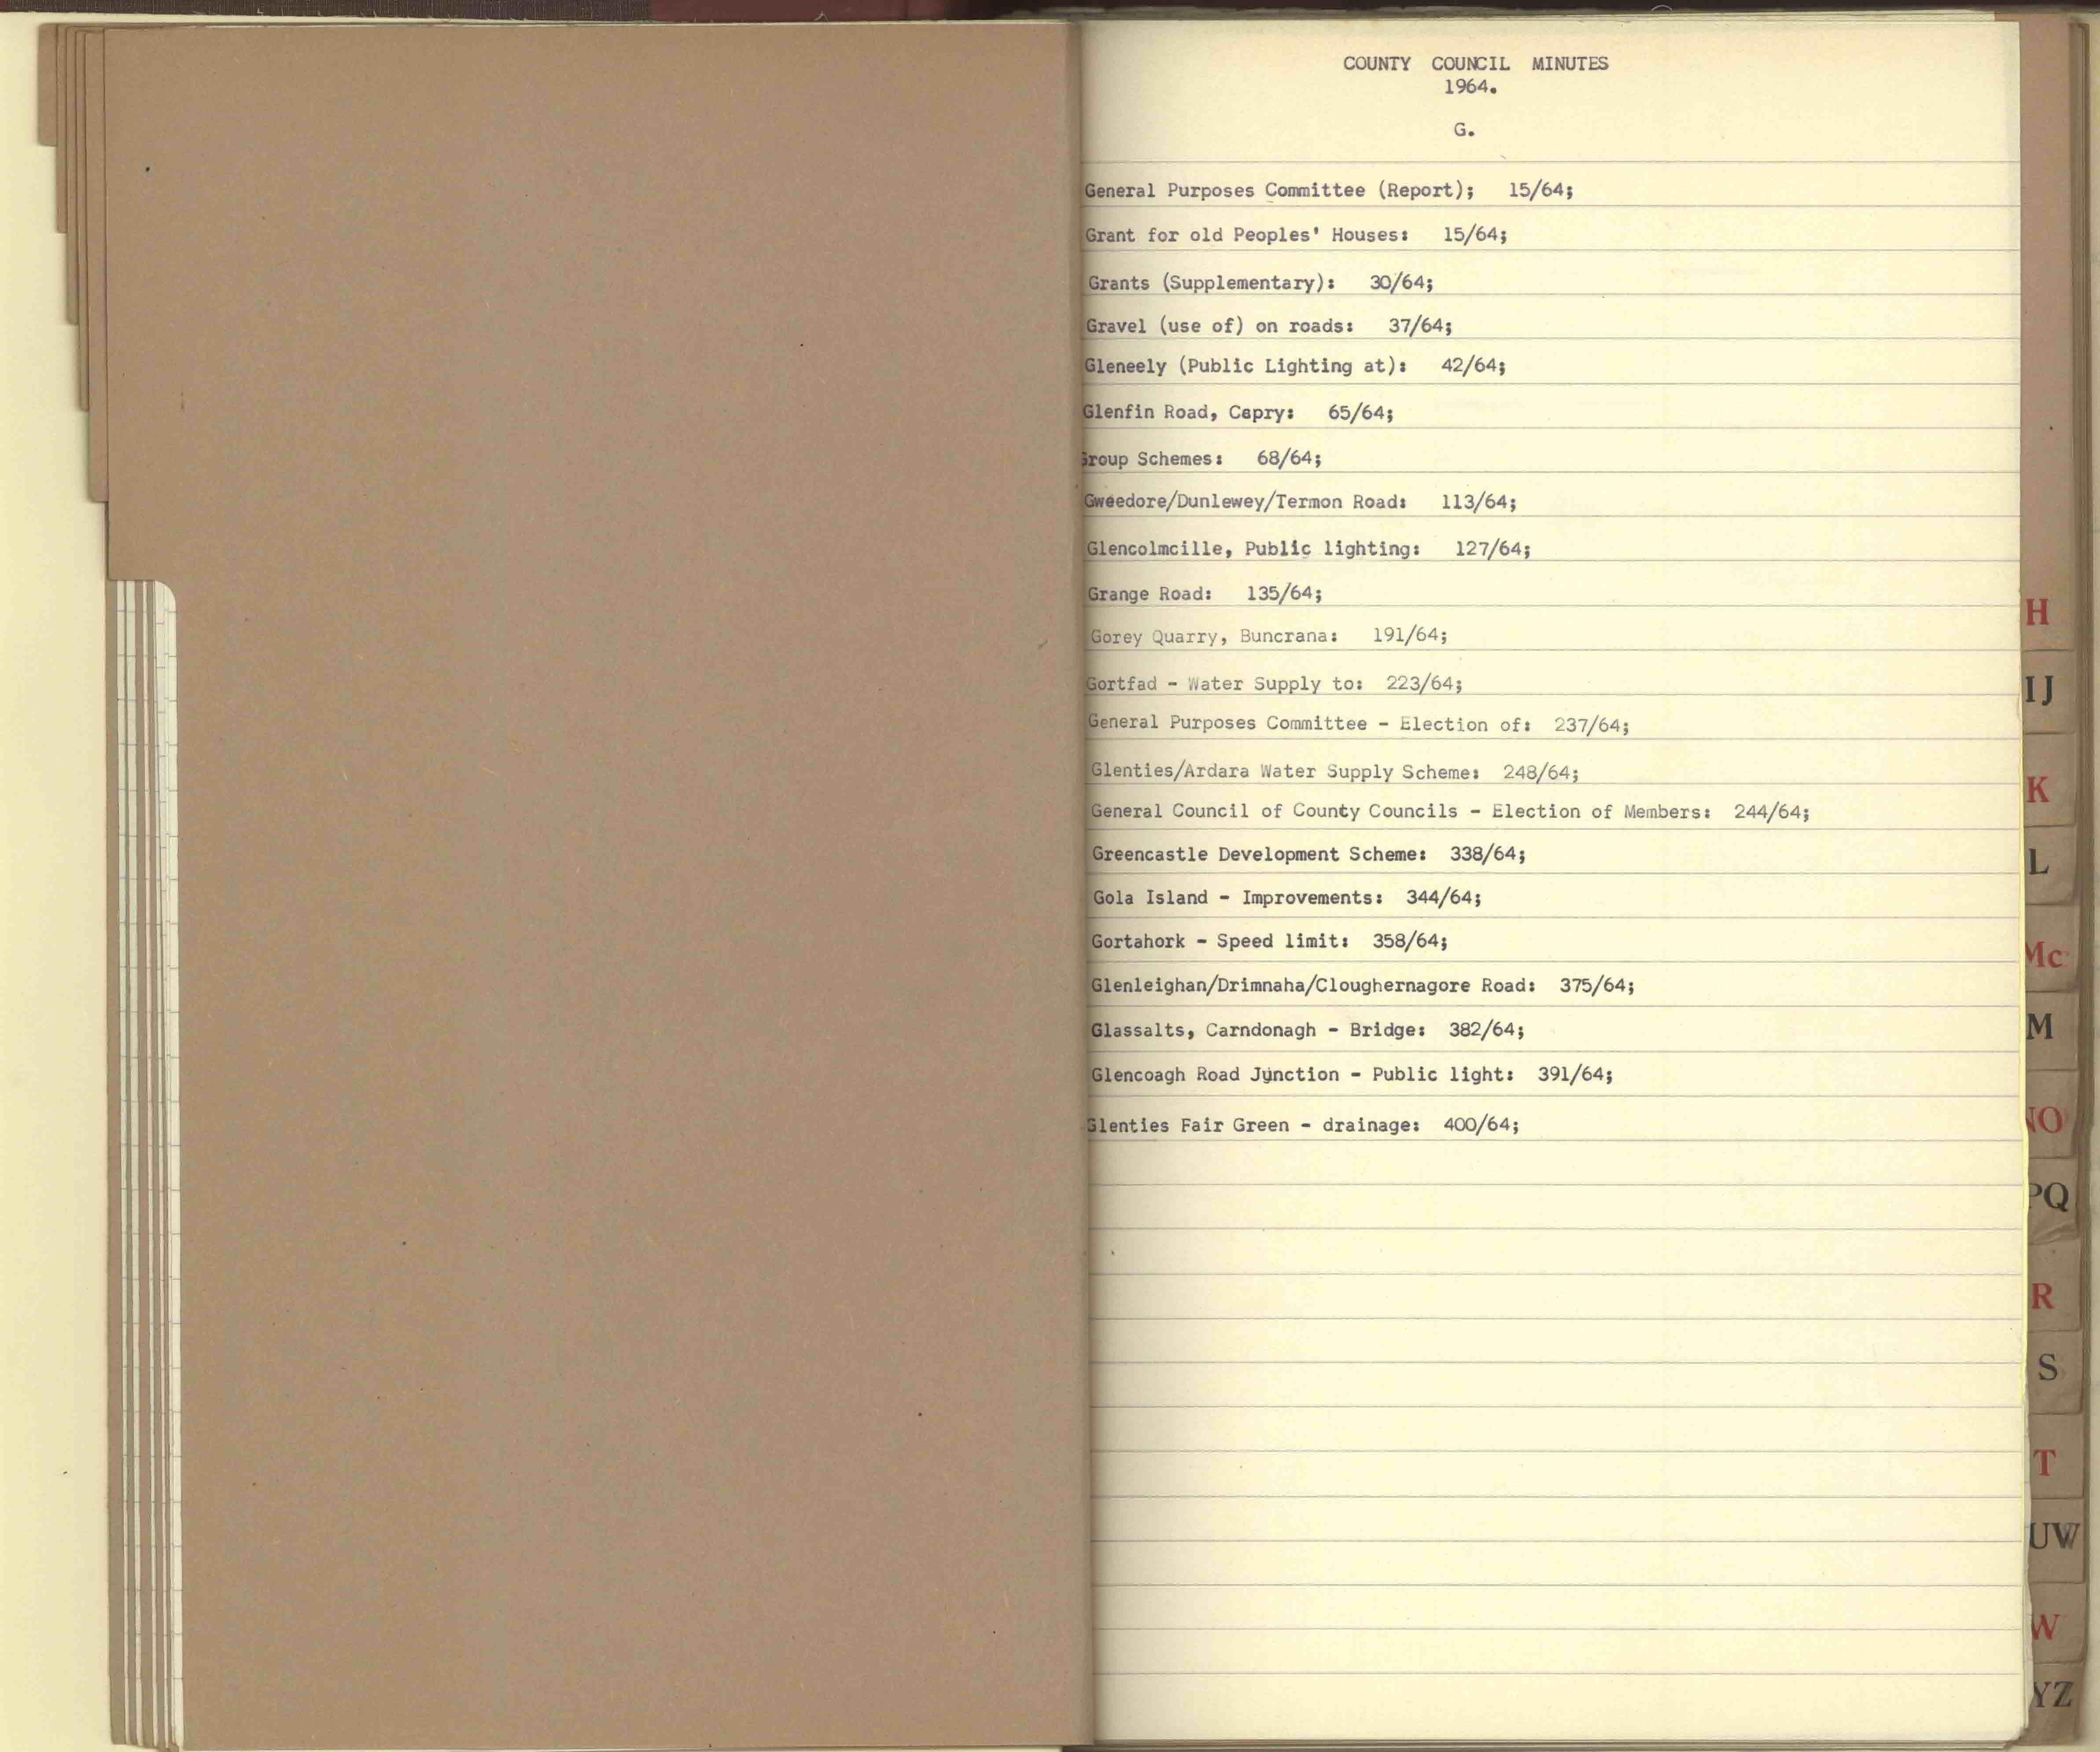 COUNTY COUNCIL MINUTES
1964.
G.
General Purposes Committee (Report); 15/64;
Grant for old Peoples' Houses: 15/64;
Grants (Supplementary): 30/64;
Gravel (use of) on roads: 37/64;
Gleneely (Public Lighting at): 42/64;
Glenfin Road, Capry: 65/64;
Group Schemes: 68/64;
Gweedore/Dunlewey/Termon Road: 113/64;
Glencolmcille, Public lighting: 127/64;
Grange Road: 135/64;
Gorey Quarry, Buncrana: 191/64;
Gortfad - Water Supply to: 223/64;
General Purposes Committee - Election of: 237/64;
Glenties/Ardara Water Supply Scheme: 248/64;
General Council of County Councils - Election of Members: 244/64;
Greencastle Development Scheme: 338/64;
Gola Island - Improvements: 344/64;
Gortahork - Speed limit: 358/64;
Glenleighan/Drimnaha/Cloughernagore Road: 375/64;
Glassalts, Carndonagh - Bridge: 382/64;
Glencoagh Road Junction - Public light: 391/64;
Glenties Fair Green - drainage: 400/64;
H
IJ
K
L
Mc
M
NO
PQ
R
S
T
UW
W
YZ